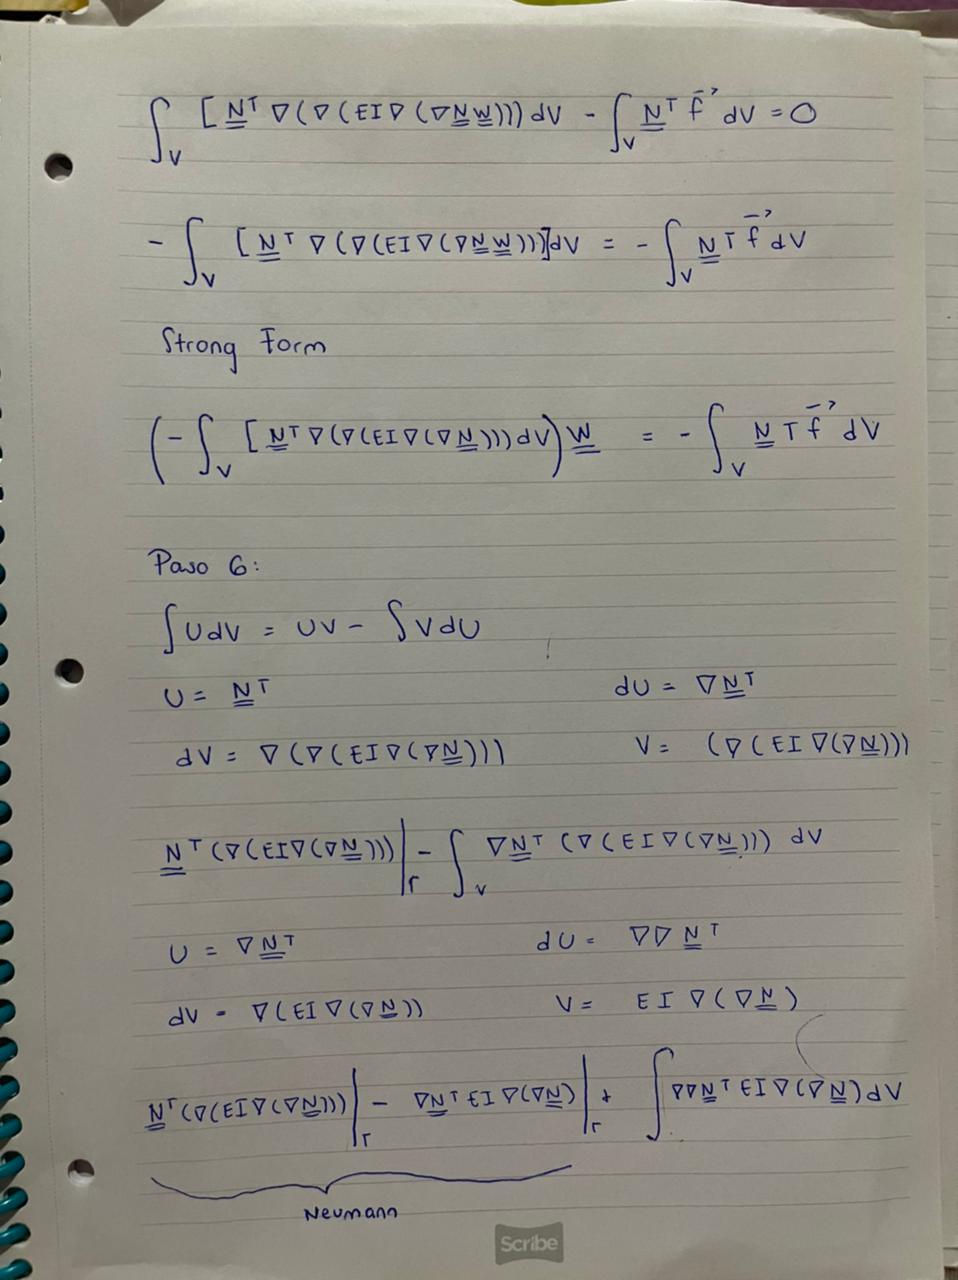 ∫_V [N̳ᵀ ∇(∇(EI∇(∇N̳W̳))) dV - ∫_V N̳ᵀ f⃗ dV = 0
- ∫_V [N̳ᵀ ∇(∇(EI∇(∇N̳W̳)))]dV = - ∫_V N̳ᵀ f⃗ dV
Strong Form
(- ∫_V [N̳ᵀ∇(∇(EI∇(∇N̳))) dV) W̳ = - ∫_V N̳ᵀ f⃗ dV
Paso 6:
∫UdV = UV - ∫VdU
U = N̳ᵀ dU = ∇N̳ᵀ
dV = ∇(∇(EI∇(∇N̳))) V = (∇(EI∇(∇N̳)))
N̳ᵀ(∇(EI∇(∇N̳)))|_Γ - ∫_V ∇N̳ᵀ (∇(EI∇(∇N̳))) dV
U = ∇N̳ᵀ dU = ∇∇N̳ᵀ
dV = ∇(EI∇(∇N̳)) V = EI∇(∇N̳)
N̳ᵀ(∇(EI∇(∇N̳)))|_Γ - ∇N̳ᵀEI∇(∇N̳)|_Γ + ∫ ∇∇N̳ᵀEI∇(∇N̳)dV
Neumann
Scribe